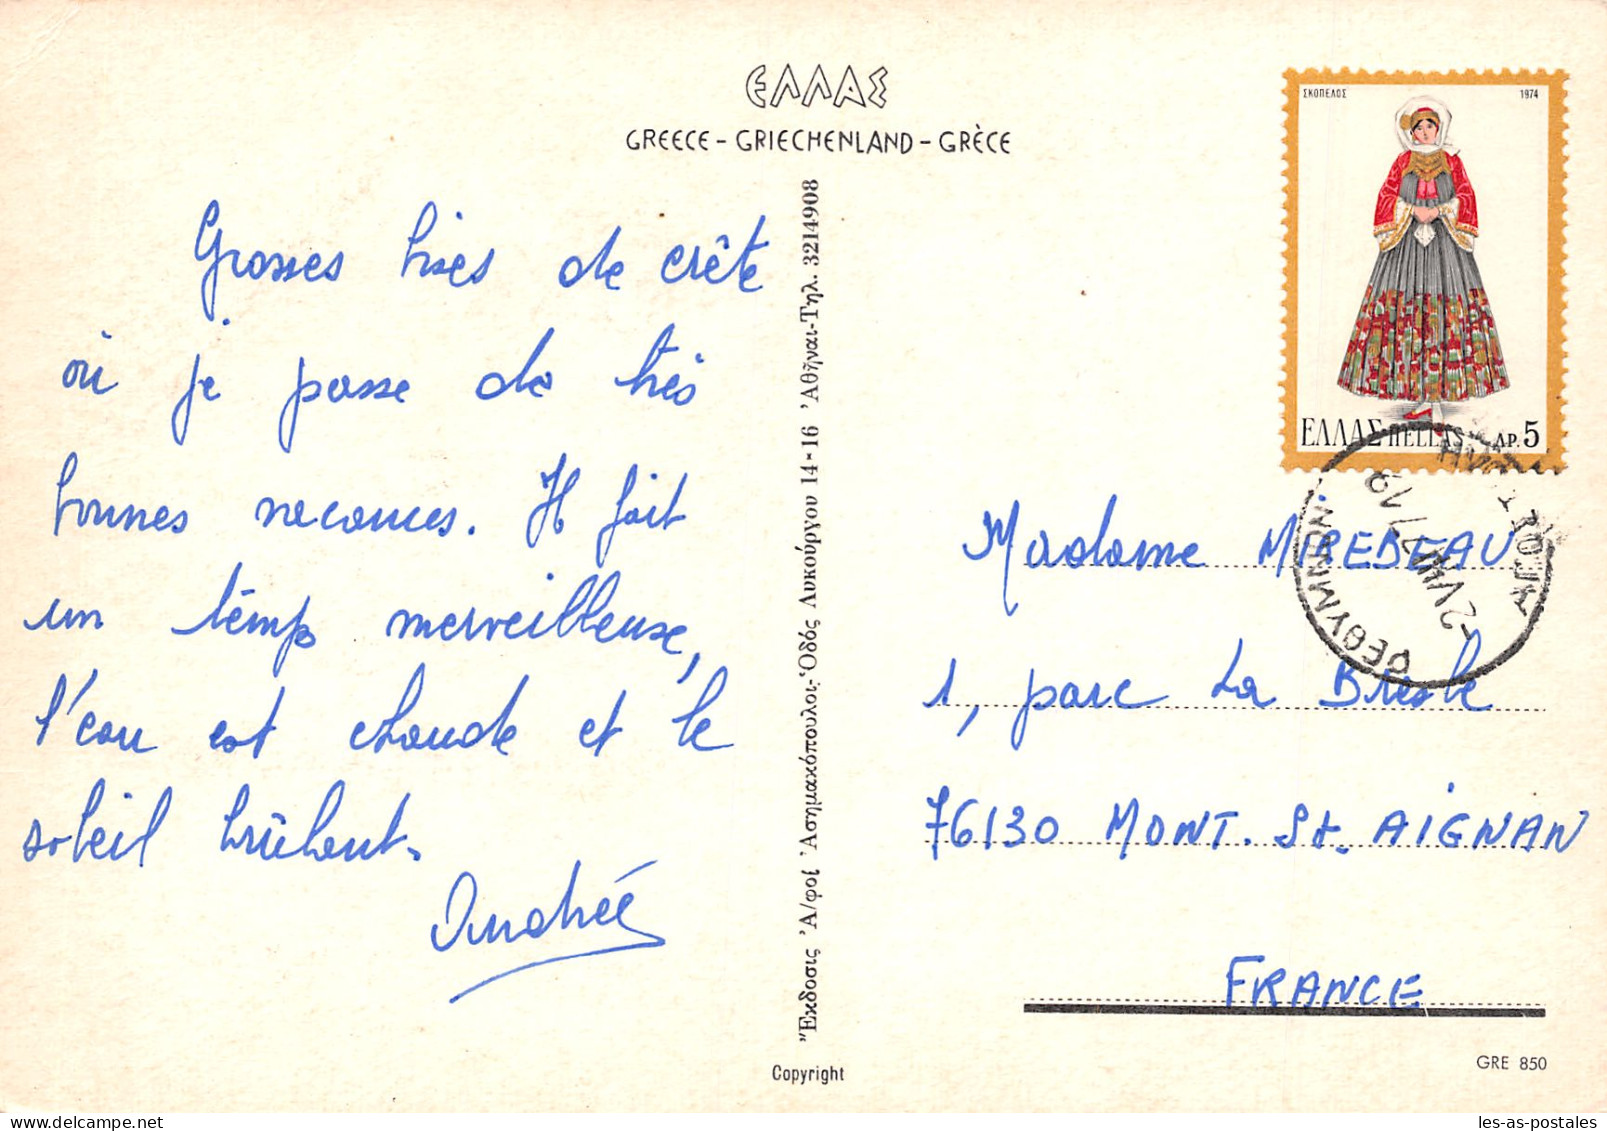 ΕΛΛΑΣ
GREECE - GRIECHENLAND - GRÈCE
ΣΚΟΠΕΛΟΣ 1974
ΕΛΛΑΣ HELLAS ΔΡ. 5
ΡΕΘΥΜΝΟΝ
Grosses bises de crête
où je passe de très
bonnes vacances. Il fait
un temps merveilleuse,
l'eau est chaude et le
soleil brûlant.
Andrée
Ἔκδοσις Ἀ/φοί Ἀσημακόπουλοι-Ὁδός Λυκούργου 14-16 Ἀθῆναι-Τηλ. 3214908
Copyright
Madame MIREBEAU
1, parc La Bresle
76130 MONT. St. AIGNAN
FRANCE
GRE 850
les-as-postales